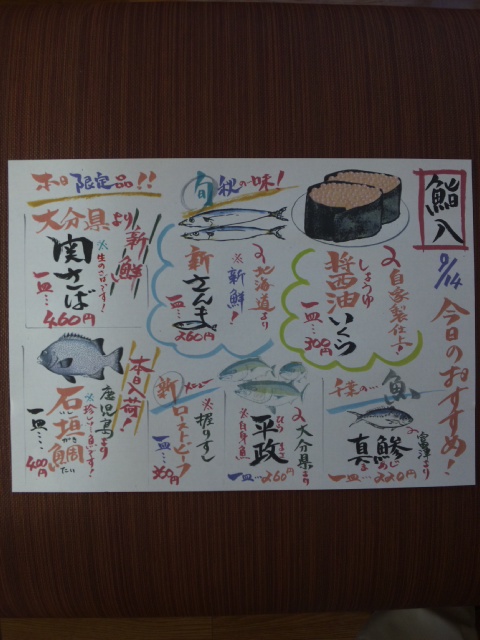 鮨八
9/14
今日のおすすめ!
自家製仕込
しょうゆ
醤油いくら
一皿…300円
旬 秋の味!
北海道より
※新鮮!
新さんま
一皿…260円
本日限定品!!
大分県より
新鮮
※生のさばです!
関さば
一皿…460円
富津より
真鯵
まあじ
一皿…220円
大分県より
平政
ひらまさ
※白身魚
一皿…260円
新メニュー
※握りずし
ローストビーフ
一皿…300円
本日入荷!
鹿児島より
※珍しい魚です!
石垣鯛
いしがきだい
一皿…400円